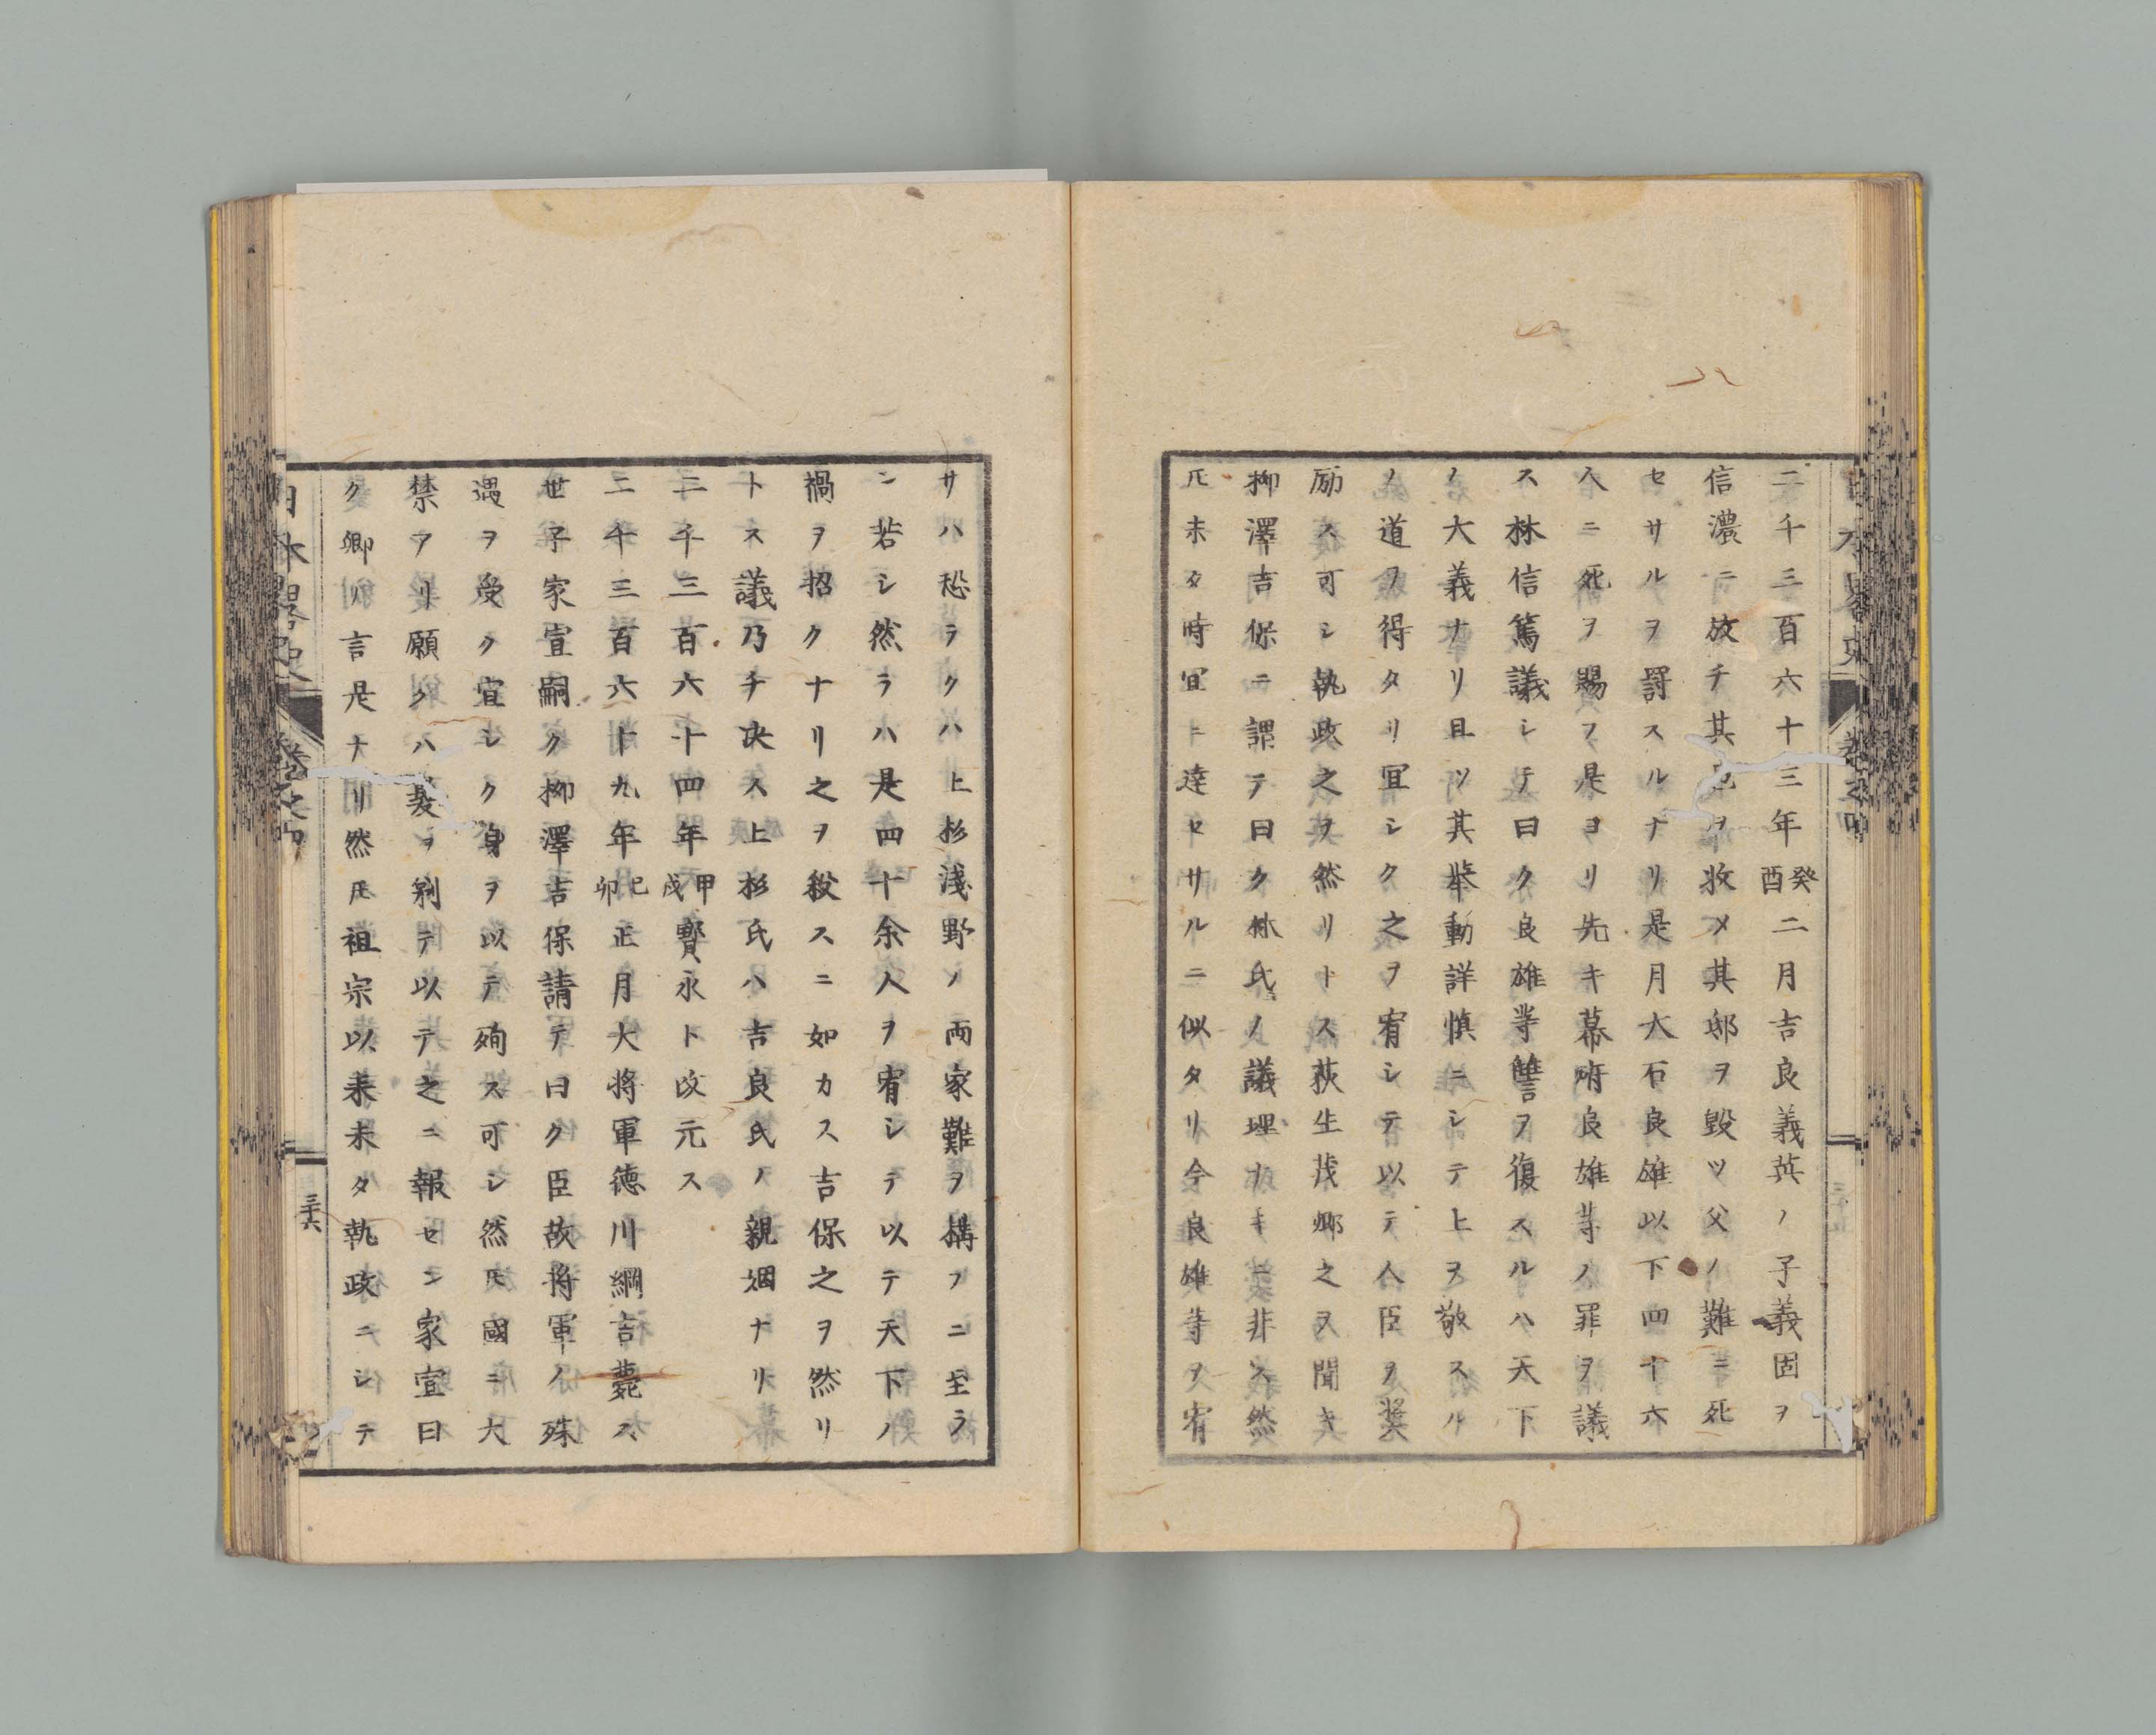 二千三百六十三年癸酉二月吉良義英ノ子義固ヲ
信濃ニ放チ其邑ヲ收メ其邸ヲ毀ツ父ノ難ニ死
セサルヲ罸スルナリ是月大石良雄以下四十六
人ニ死ヲ賜フ是ヨリ先キ幕府良雄等ノ罪ヲ議
ス林信篤議シテ曰ク良雄等讐ヲ復スルハ天下
ノ大義ナリ且ツ其挙動詳慎ニシテ上ヲ敬スル
ノ道ヲ得タリ冝シク之ヲ宥シテ以テ人臣ヲ奨
励ス可シ執政之ヲ然リトス荻生茂卿之ヲ聞キ
柳澤吉保ニ謂テ曰ク林氏ノ議理ナキニ非ス然
𪜈未タ時冝ニ達セサルニ似タリ今良雄等ヲ宥
サハ恐ラクハ上杉浅野ノ両家難ヲ構フニ至ラ
ン若シ然ラハ是四十余人ヲ宥シテ以テ天下ノ
禍ヲ招クナリ之ヲ殺スニ如カス吉保之ヲ然リ
トス議乃チ决ス上杉氏ハ吉良氏ノ親姻ナリ
二千三百六十四年甲戌寳永ト改元ス
二千三百六十九年己卯正月大将軍徳川綱吉薨ス
世子家宣嗣ク柳澤吉保請テ曰ク臣故将軍ノ殊
遇ヲ受ク宜シク身ヲ以テ殉ス可シ然𪜈國ニ大
禁アリ願クハ髪ヲ剃テ以テ之ニ報セン家宣曰
ク卿ノ言是ナリ然𪜈祖宗以来未タ執政ニシテ
日本畧史
巻之四
三十六